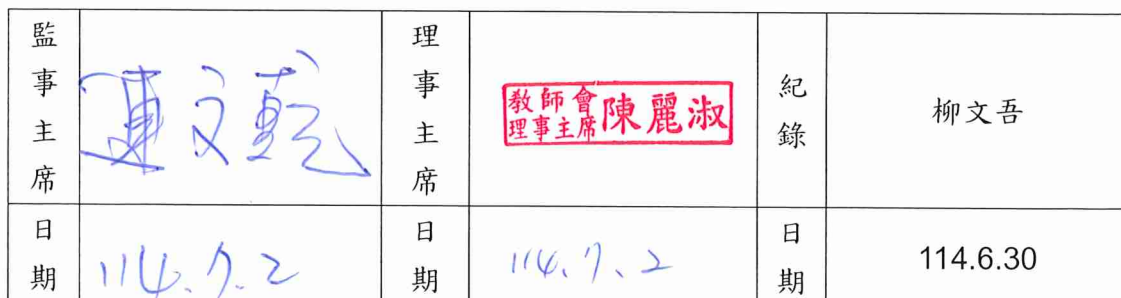 監事主席
連文乾
理事主席
教師會
理事主席
陳麗淑
紀錄
柳文吾
日期
114.7.2
日期
114.7.2
日期
114.6.30